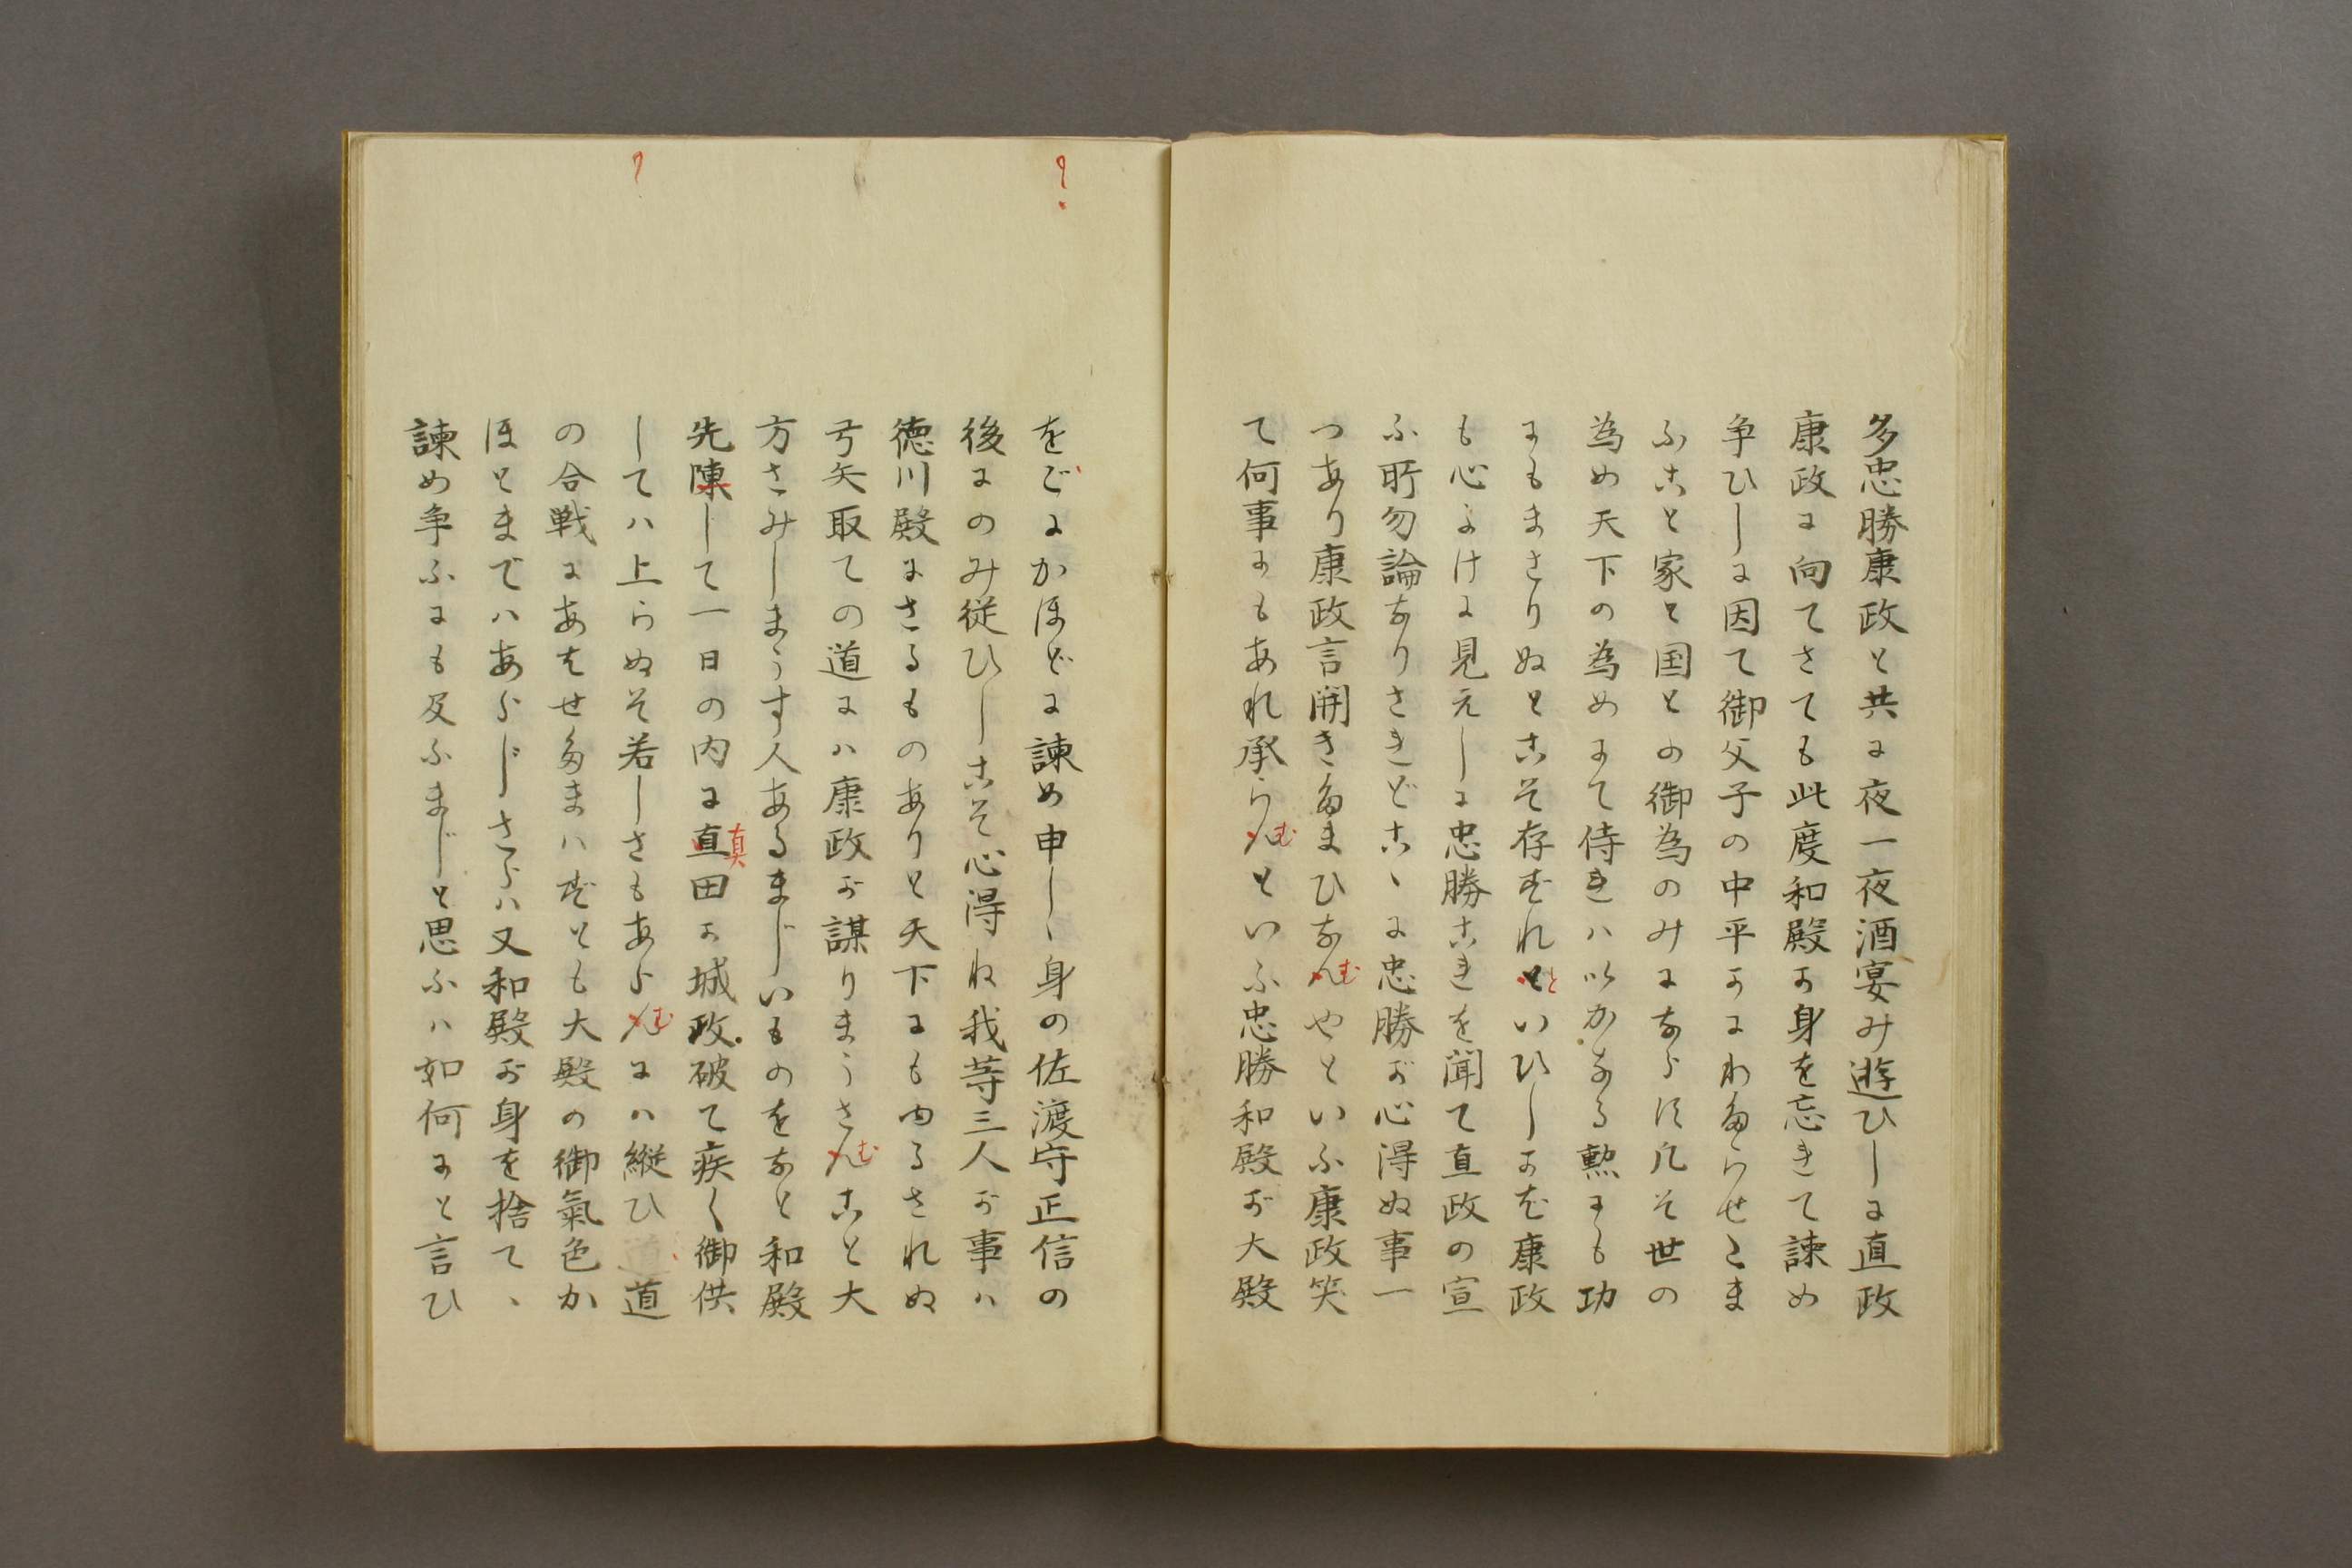 多忠勝康政と共に夜一夜酒宴み遊ひしに直政
康政に向てさても此度和殿か身を忘きて諫め
争ひしに因て御父子の中平かにわたらせたま
ふこと家と国との御為のみにあらす凡そ世の
為め天下の為めにて侍れハいかなる勲にも功
にもまさりぬとこそ存すれといひしかは康政
も心よけに見えしに忠勝これを聞て直政の宣
ふ所勿論なりされどこゝに忠勝が心得ぬ事一
つあり康政言開きたまひなむやといふ康政笑
て何事にもあれ承らむといふ忠勝和殿が大殿
をだにかほどに諫め申しゝ身の佐渡守正信の
後にのみ従ひしこそ心得ね我等三人が事ハ
徳川殿にさるものありと天下にも由るされぬ
弓矢取ての道にハ康政が謀りまうさむこと大
方さみしまうす人あるまじいものをなと和殿
先陳して一日の内に真田か城政破て疾く御供
してハ上らぬそ若しさもあらむにハ縦ひ道
の合戦にあはせたまハずとも大殿の御氣色か
ほとまでハあらじさらハ又和殿が身を捨てゝ
諫め争ふにも及ふまじと思ふハ如何にと言ひ